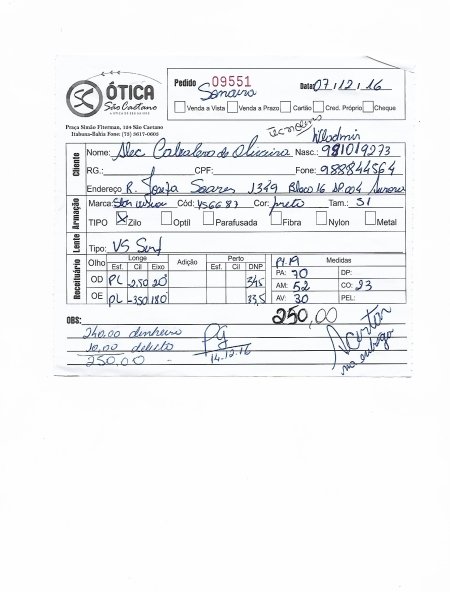 ÓTICA
São Caetano
Pedido 09551 Data: 07/12/16
Venda a Vista Venda a Prazo Cartão Cred. Próprio Cheque
Praça Simão Fiterman, 104 São Caetano
Itabuna-Bahia Fone: (73) 3617-0605
Cliente
Nome: Alec de Oliveira Nasc.: 981019273
RG.: CPF: Fone: 988844564
Endereço R. Josefa Soares 1349 Bloco 16
Armação
Marca: Cód: VS6687 Cor: preto Tam.: 51
TIPO X Zilo Optil Parafusada Fibra Nylon Metal
Lente
Tipo: VS Surf
Receituário
Olho Longe Adição Perto Medidas
Esf. Cil Eixo Esf. Cil DNP
OD PL -2,50 20° 34,5 PA: 70 DP:
OE PL -3,50 180 33,5 AM: 52 CO: 23
AV: 30 PEL:
OBS: 250,00
240,00 dinheiro
10,00 debito
250,00
Pg
14-12-16